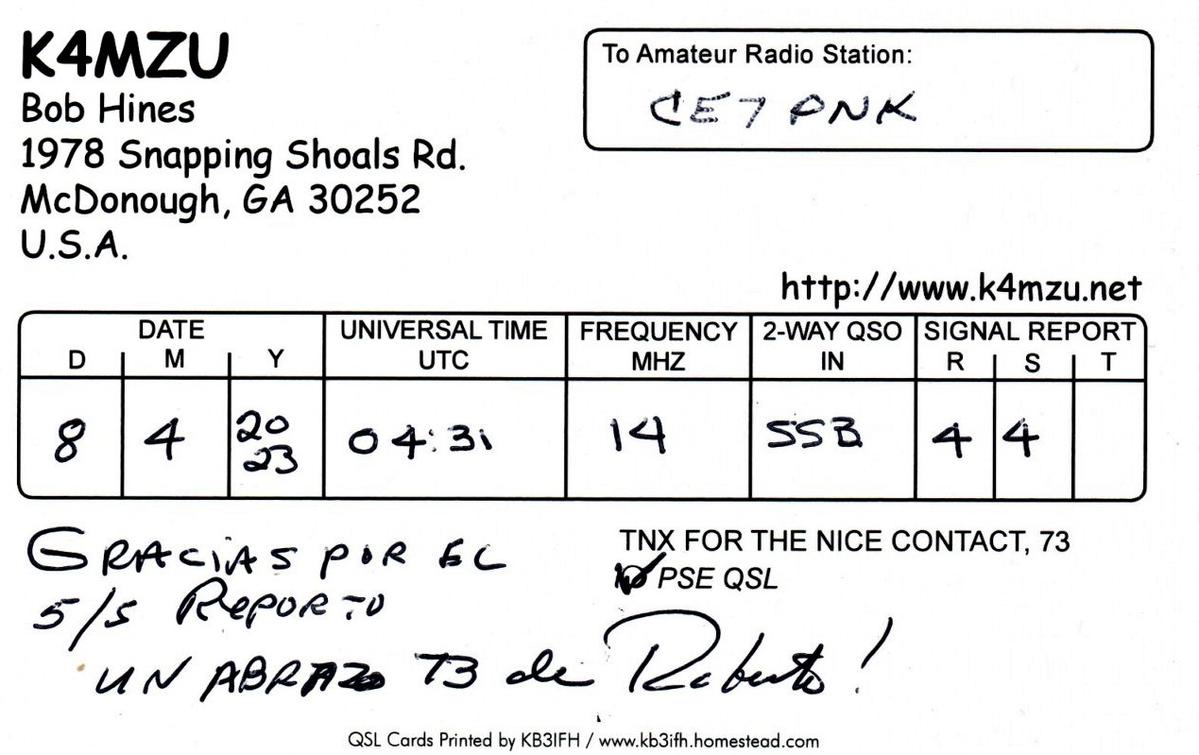 K4MZU
Bob Hines
1978 Snapping Shoals Rd.
McDonough, GA 30252
U.S.A.
To Amateur Radio Station:
CE7PNK
http://www.k4mzu.net
DATE UNIVERSAL TIME FREQUENCY 2-WAY QSO SIGNAL REPORT
D M Y UTC MHZ IN R S T
8 4 2023 04:31 14 SSB 4 4
GRACIAS POR EL
5/5 REPORTO
UN ABRAZO 73 de Roberto!
TNX FOR THE NICE CONTACT, 73
PSE QSL
QSL Cards Printed by KB3IFH / www.kb3ifh.homestead.com